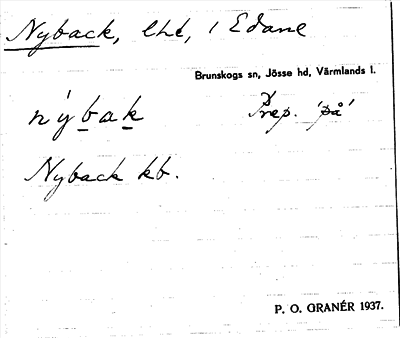 Nyback, lht, i Edane
Brunskogs sn, Jösse hd, Värmlands l.
nybak Prep. 'på'
Nyback kb.
P. O. GRANÉR 1937.